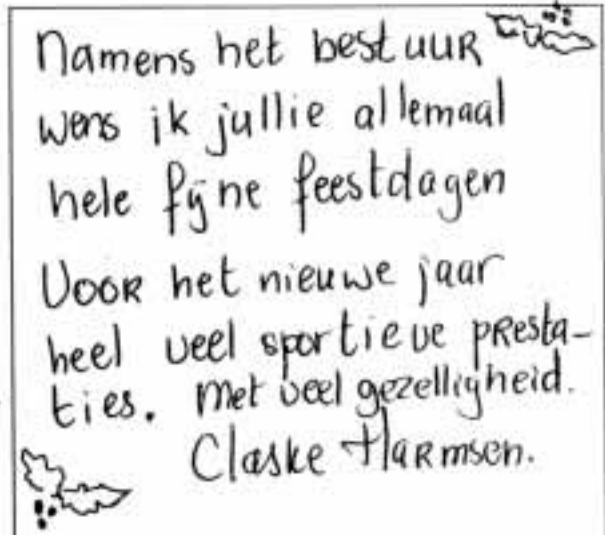 Namens het bestuur
wens ik jullie allemaal
hele fijne feestdagen
Voor het nieuwe jaar
heel veel sportieve presta-
ties. Met veel gezelligheid.
Claske Harmsen.